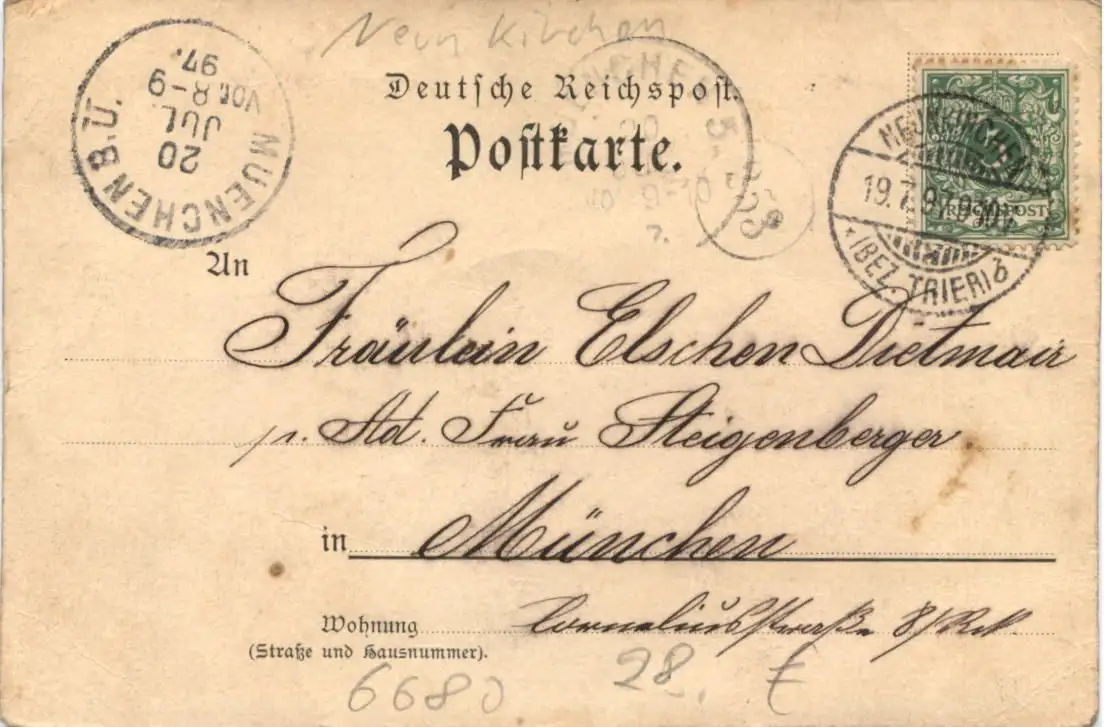 Neunkirchen
Deutsche Reichspost.
Postkarte.
MUENCHEN B.U.
20
JUL.
Vor. 8-9
97.
NEUNKIRCHEN
19.7.97.9-10V.
* (BEZ. TRIER) b
REICHSPOST
An
Fräulein Elschen Dietmair
p. Ad. Frau Steigenberger
in München
Wohnung Corneliusstraße 8/Rck.
(Straße und Hausnummer).
6680 28. E